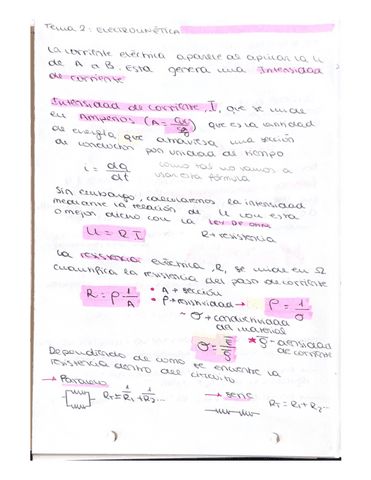 Tema 2: ELECTROCINÉTICA
La corriente eléctrica aparece al aplicar la U
de A a B. Esta genera una Intensidad
de corriente
Intensidad de corriente, I, que se mide
en Amperios (A = C/s) que es la cantidad
de energía que atraviesa una sección
de conductor por unidad de tiempo
i = dq/dt como tal no vamos a
usar esta fórmula
Sin embargo, calcularemos la intensidad
mediante la relación de U con esta
o mejor dicho con la LEY DE OHM
U = R I R → resistencia
La resistencia eléctrica, R, se mide en Ω
cuantifica la resistencia del paso de corriente
R = ρ l/A • A → sección
• ρ → resistividad → ρ = 1/σ
~ σ → conductividad
del material
σ = J/E * J - densidad
de corriente
Dependiendo de como se encuentre la
resistencia dentro del circuito
→ Paralelo → serie
R₁ + R₂ ... R_T = R₁ + R₂ ...